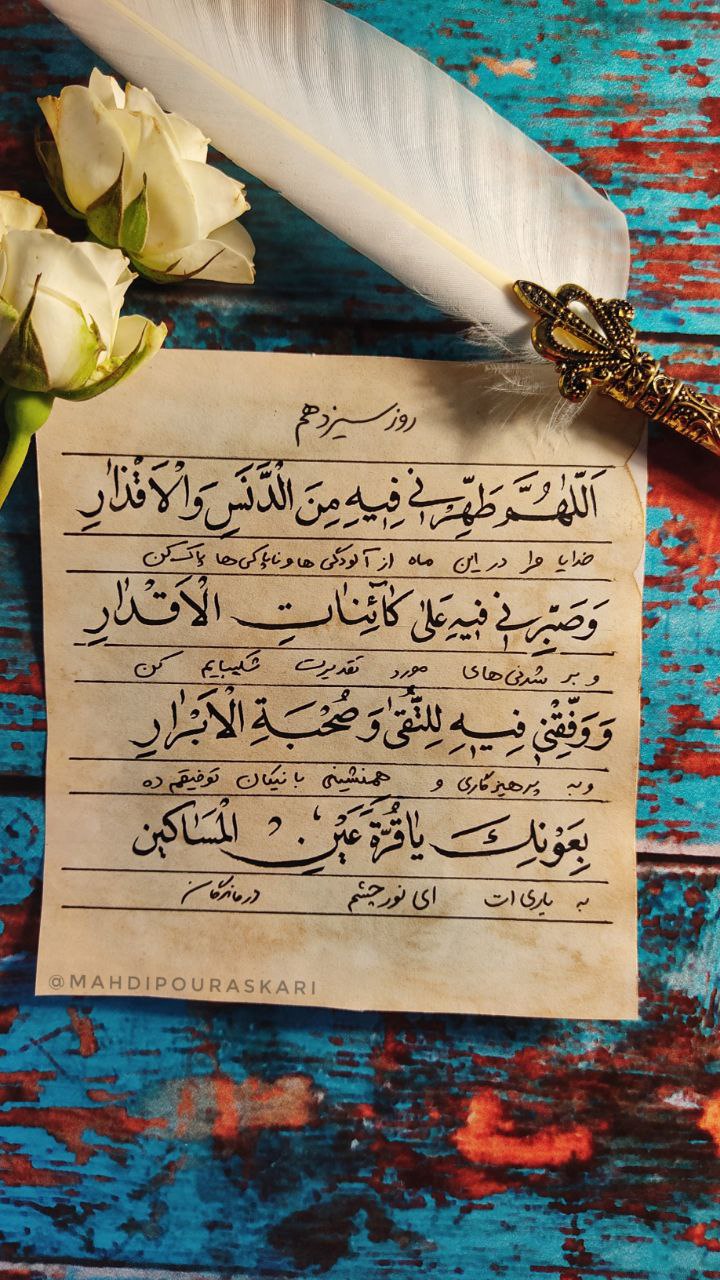 روز سیزدهم
اَللّٰهُمَّ طَهِّرْنٖي فِيهِ مِنَ الْدَّنَسِ وَالْاَقْذٰارِ
خدایا مرا در این ماه از آلودگی ها و ناپاکی ها پاک کن
وَصَبِّرْنٖي فٖيهِ عَلىٰ كٰائِنٰاتِ الْاَقْدٰارِ
و بر شدنی های مورد تقدیرت شکیبایم کن
وَوَفِّقْنٖي فِيهِ لِلتُّقىٰ وَصُحْبَةِ الْاَبْرٰارِ
وبه پرهیزگاری و همنشینی با نیکان توفیقم ده
بِعَوْنِكَ يٰا قُرَّةَ عَيْنِ الْمَسٰاكين
به یاری ات ای نور چشم درماندگان
@MAHDIPOURASKARI